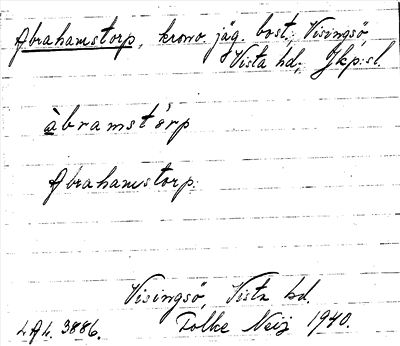 Abrahamstorp, krono. jäg. bost.; Visingsö,
Vista hd; Jkp:sl.
àbramstórp
Abrahamstorp.
Visingsö, Vista hd.
Folke Neij 1940.
3886.